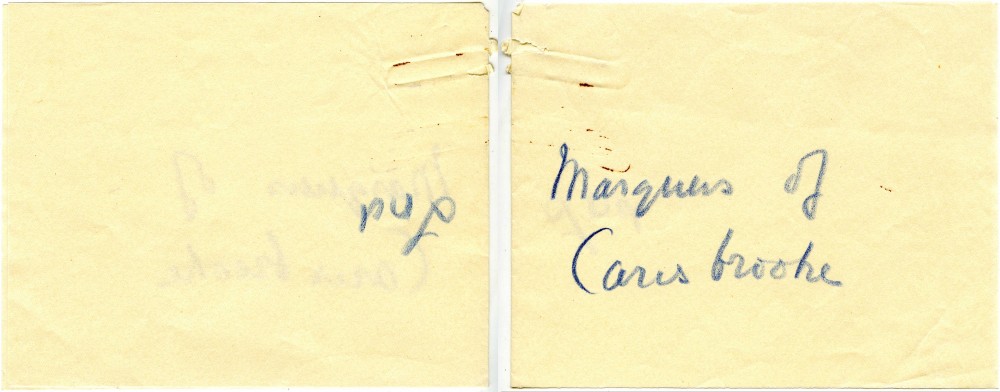 Marquess of
Carisbrooke